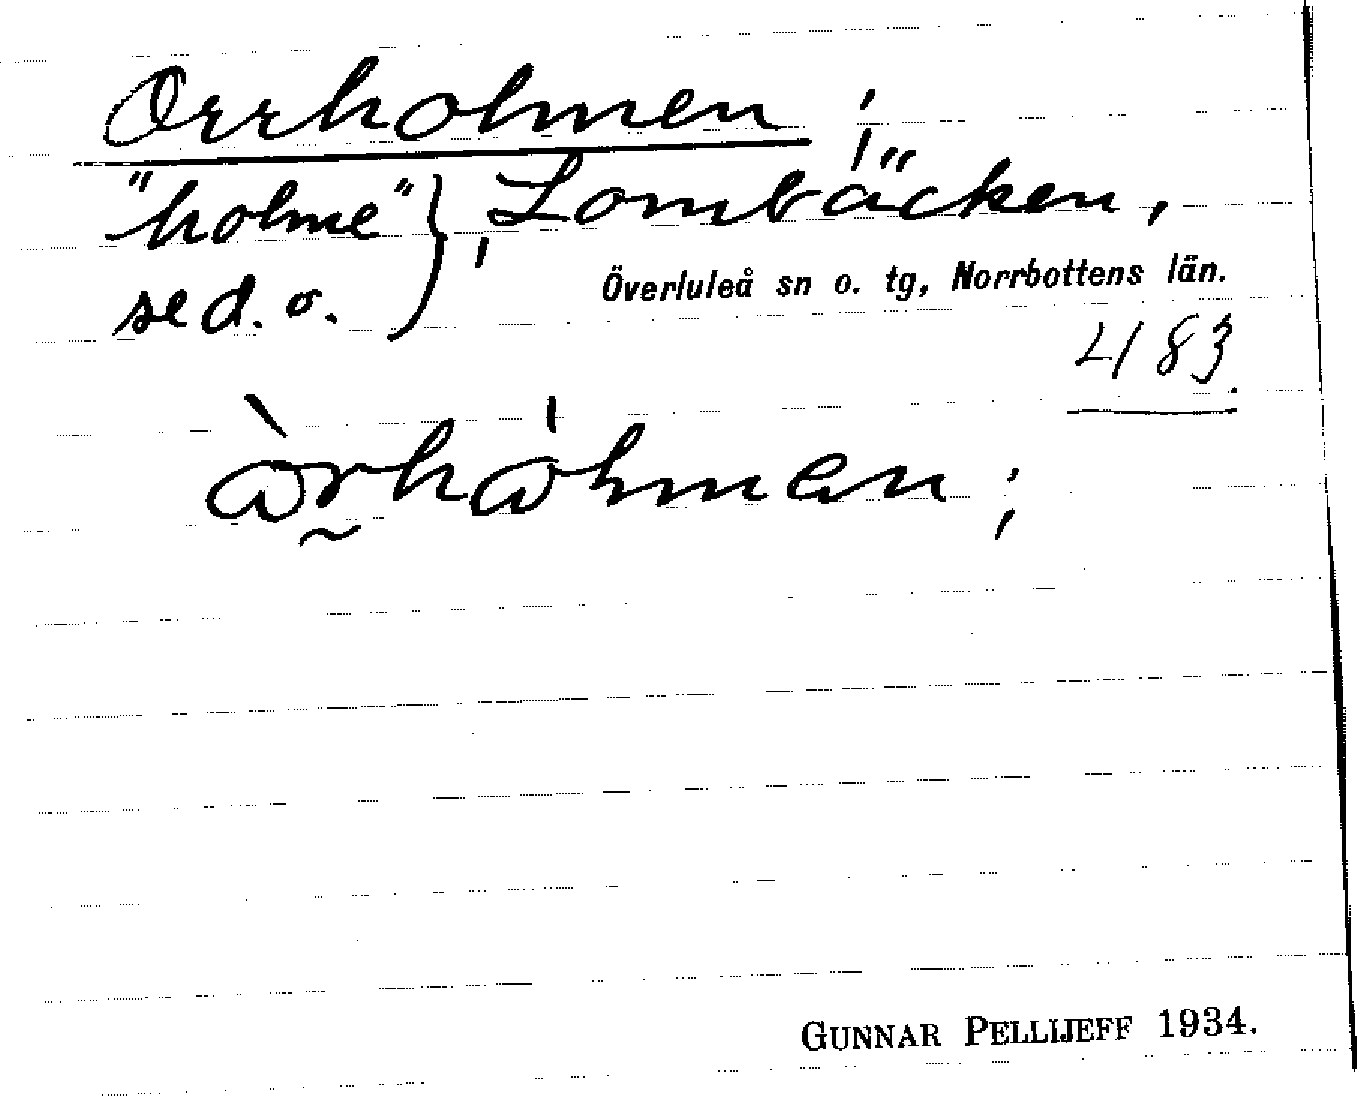 Orrholmen;
"holme"}, Lombäcken,
sed. o.
Överluleå sn o. tg, Norrbottens län.
483.
àrhåhmen;
GUNNAR PELLIJEFF 1934.